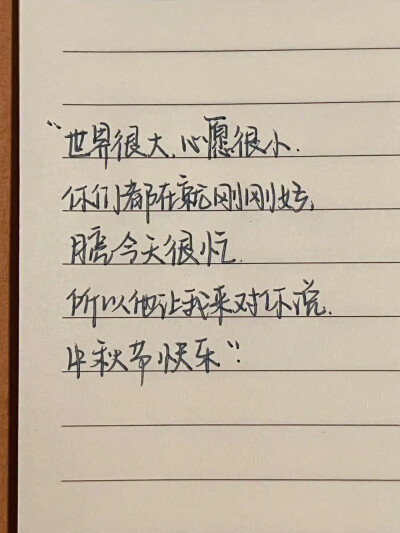 “世界很大,心愿很小.
你们都在就刚刚好,
月亮今天很忙.
所以他让我来对你说.
中秋节快乐”.